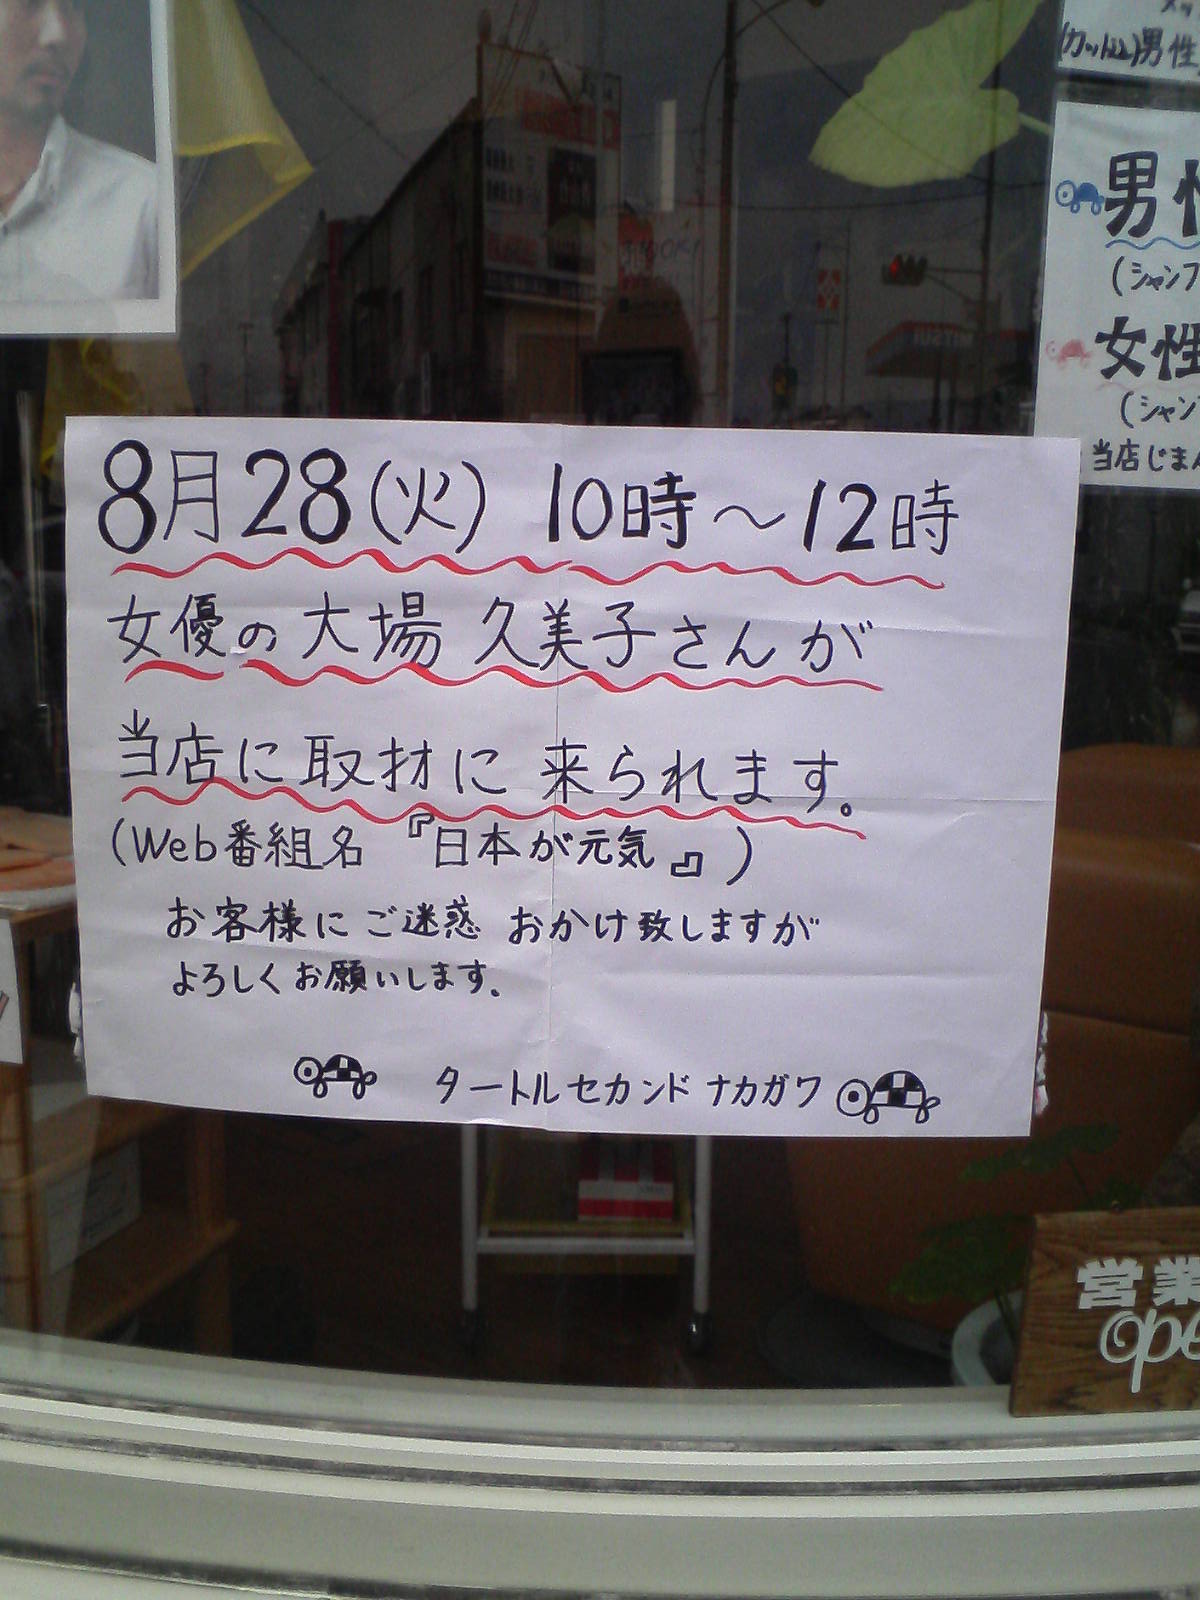 8月28(火) 10時～12時
女優の大場 久美子さんが
当店に取材に 来られます。
(Web番組名『日本が元気』)
お客様にご迷惑 おかけ致しますが
よろしくお願いします。
タートルセカンド ナカガワ
男性
男
(シャンプ
女性
(シャンプ
当店じまん
営業
ope
MITSUI